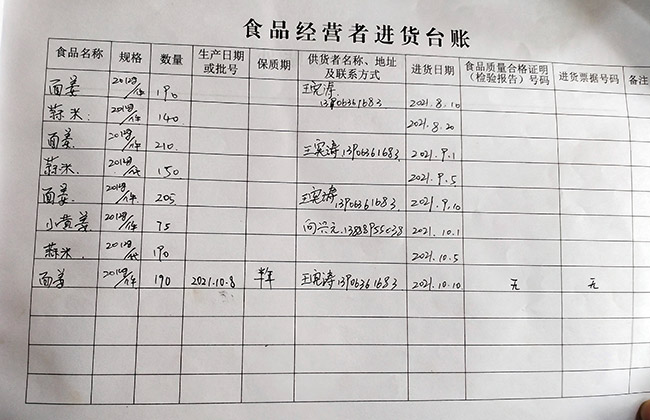 食品经营者进货台账
食品名称 规格 数量 生产日期或批号 保质期 供货者名称、地址及联系方式 进货日期 食品质量合格证明（检验报告）号码 进货票据号码 备注
面姜 20斤/件 190 13906361683 2021.8.10
蒜米 20斤/件 140 2021.8.20
面姜 20斤/件 210 13906361683 2021.9.1
蒜米 20斤/件 150 2021.9.5
面姜 20斤/件 205 13906361683 2021.9.10
小黄姜 20斤/件 75 向兴元 2021.10.1
蒜米 20斤/件 190 2021.10.5
面姜 20斤/件 190 2021.10.8 半年 13906361683 2021.10.10 无 无